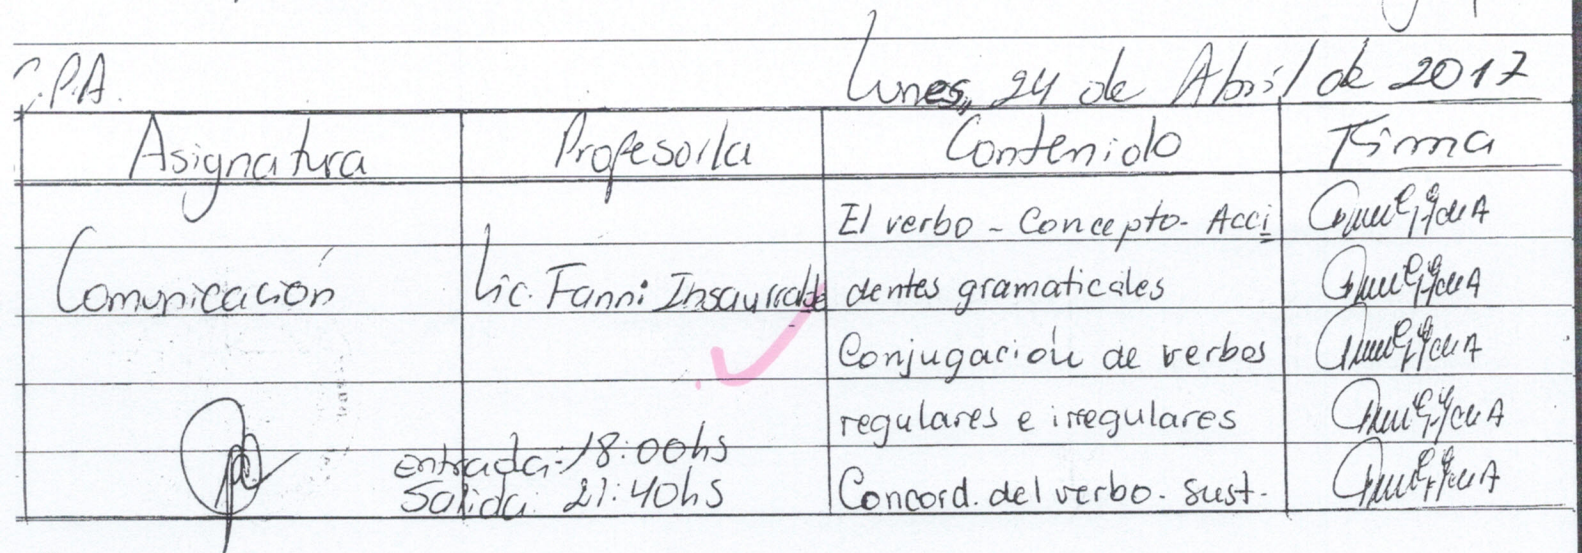 C.P.A. Lunes, 24 de Abril de 2017
Asignatura Profesor/a Contenido Firma
El verbo - Concepto - Acci
Comunicación Lic. Fanni Insaurralde dentes gramaticales
Conjugación de verbos
regulares e irregulares
entrada: 18:00hs
Salida: 21:40hs Concord. del verbo. Sust.